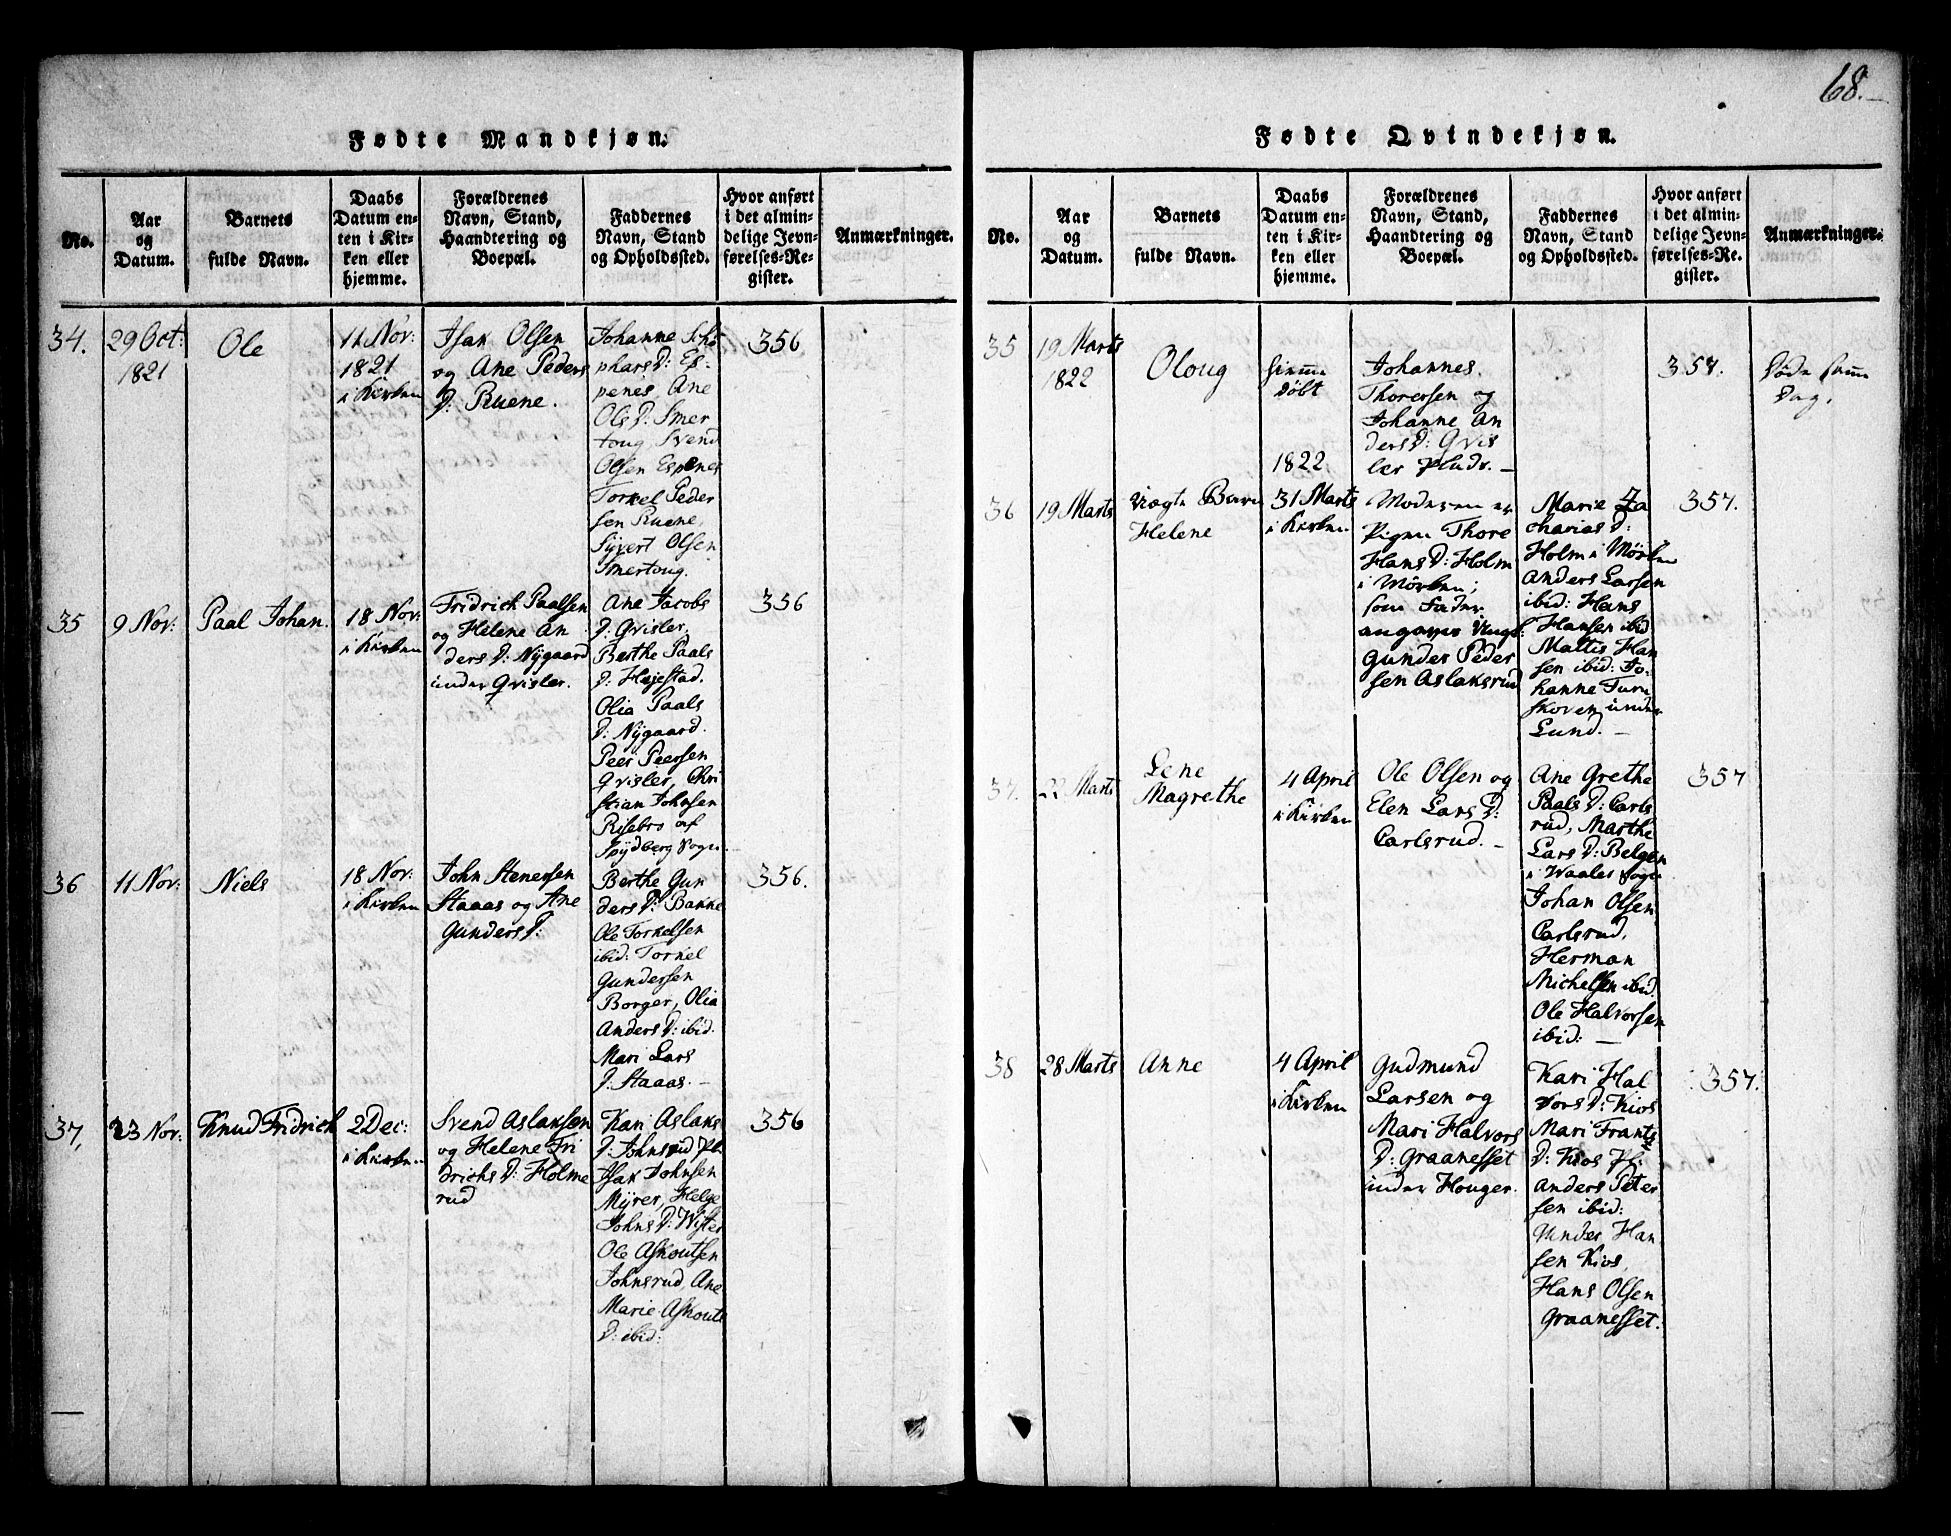 68.
Fødte Mandkjøn.
No.
Aar
og
Datum.
Barnets
fulde Navn.
Daabs
Datum en-
ten i Kir-
ken eller
hjemme.
Forældrenes
Navn, Stand,
Haandtering og
Boepæl.
Faddernes
Navn, Stand
og Opholdssted.
Hvor anført
i det almin-
delige Jevn-
førelses-Re-
gister.
Anmærkninger.
34.
29 Oct:
1821
Ole
11 Nov:
1821
i Kirken
Isak Olsen
og Ane Peders
D: Ruene.
Johanne
phars D: Es-
penes, Ane
Ols D: Smer
toug, Svend
Olsen Espenes
Torkel Peder
sen Ruene,
Syvert Olsen
Smertoug.
356
35
9 Nov:
Paal Johan.
18 Nov:
i Kirken
Fridrich Paalsen
og Helene An
ders D: Nygaard
under Gvisler.
Ane Jacobs
D: Gvisler.
Berthe Paals
D: Hejestad.
Olia Paals
D: Nygaard.
Peer Peersen
Gvisler, Chri
stian Johnsen
Risebro af
Spydberg Sogn.
356
36
11 Nov:
Niels
18 Nov:
i Kirken
John Stenersen
Staaas og Ane
Gunders D:
Berthe Gun
ders D: Bakke
Ole Torkelsen
ibid: Torkel
Gundersen
Borger, Olia
Anders D: ibid.
Mari Lars
D: Staaas.
356.
37,
23 Nov:
Knud Fridrich
2 Dec:
i Kirken
Svend Aslaksen
og Helene Fri
drichs D: Holme
rud
Kari Aslaks
D: Johnsrud Pl:
Isak Johnsen
Myrer, Helge
Johns D: Wister
Ole Askoutsen
Johnsrud, Ane
Marie Askouts
D: ibid:
356
Fødte Qvindekjøn.
No.
Aar
og
Datum.
Barnets
fulde Navn.
Daabs
Datum en-
ten i Kir-
ken eller
hjemme.
Forældrenes
Navn, Stand,
Haandtering og
Boepæl.
Faddernes
Navn, Stand
og Opholdssted.
Hvor anført
i det almin-
delige Jevn-
førelses-Re-
gister.
Anmærkninger.
35
19 Marts
1822
Oloug
hiemme
døbt
Johannes
Thorersen og
Johanne An
ders D: Gvis
ler Pladr.
357.
døde samme
Dag.
36
19 Marts
Uægte Barn
Helene
1822
31 Marts
i Kirken
Moderen er
Pigen Thore
Hans D: Holm
i Mørken;
som Fader
angaves Ungk:
Gunder Peder
sen Aslaksrud
Marie Za
charias D:
Holm i Mørken
Anders Larsen
ibid: Hans
Hansen ibid
Mattis Han
sen ibid: Jo-
hanne Furu
skoven under
Lund.
357.
37.
22 Marts
Lene
Magrethe
4 April
i Kirken
Ole Olsen og
Elen Lars D:
Carlsrud.
Ane Grethe
Paals D: Carls
rud, Marthe
Lars D: Belgen
i Waaler Sogn
Johan Olsen
Carlsrud,
Herman
Michelsen ibid.
Ole Halvorsen
ibid:
357
38
28 Marts
Anne
4 April
i Kirken
Gudmund
Larsen og
Mari Halvors
D: Graanesset
under Houger.
Kari Hal
vors D: Kios
Mari Frants
D: Kios Pl:
Anders Peter
sen ibid:
Gunder Han
sen Kios,
Hans Olsen
Graanesset.
357.